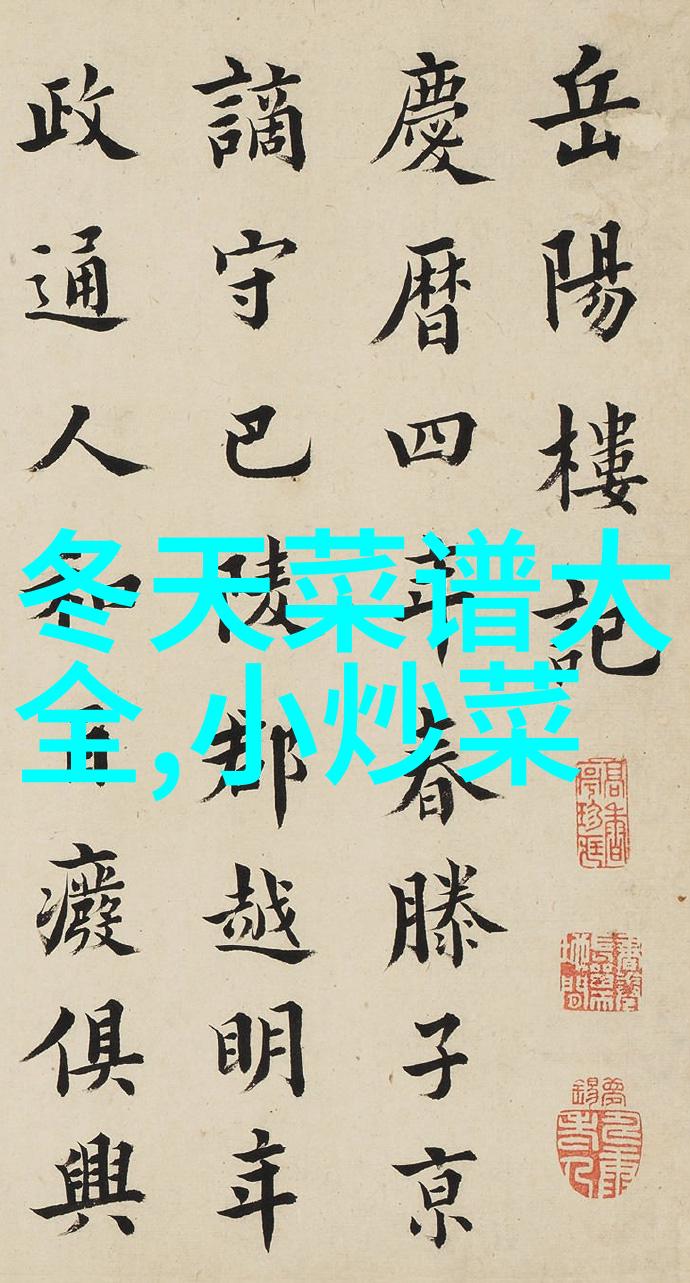 岳陽樓記
慶暦四年春滕子京
謫守巴陵郡越明年
政通人和百癈俱興
冬天菜谱大
全,小炒菜